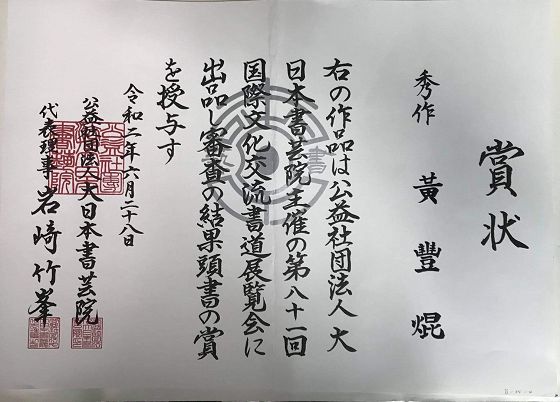 賞状
秀作 黃豐焜
右の作品は公益社団法人大
日本書芸院主催の第八十一回
国際文化交流書道展覧会に
出品し審査の結果頭書の賞
を授与す
令和二年六月二十八日
公益社団法人大日本書芸院
代表理事 岩崎竹峯